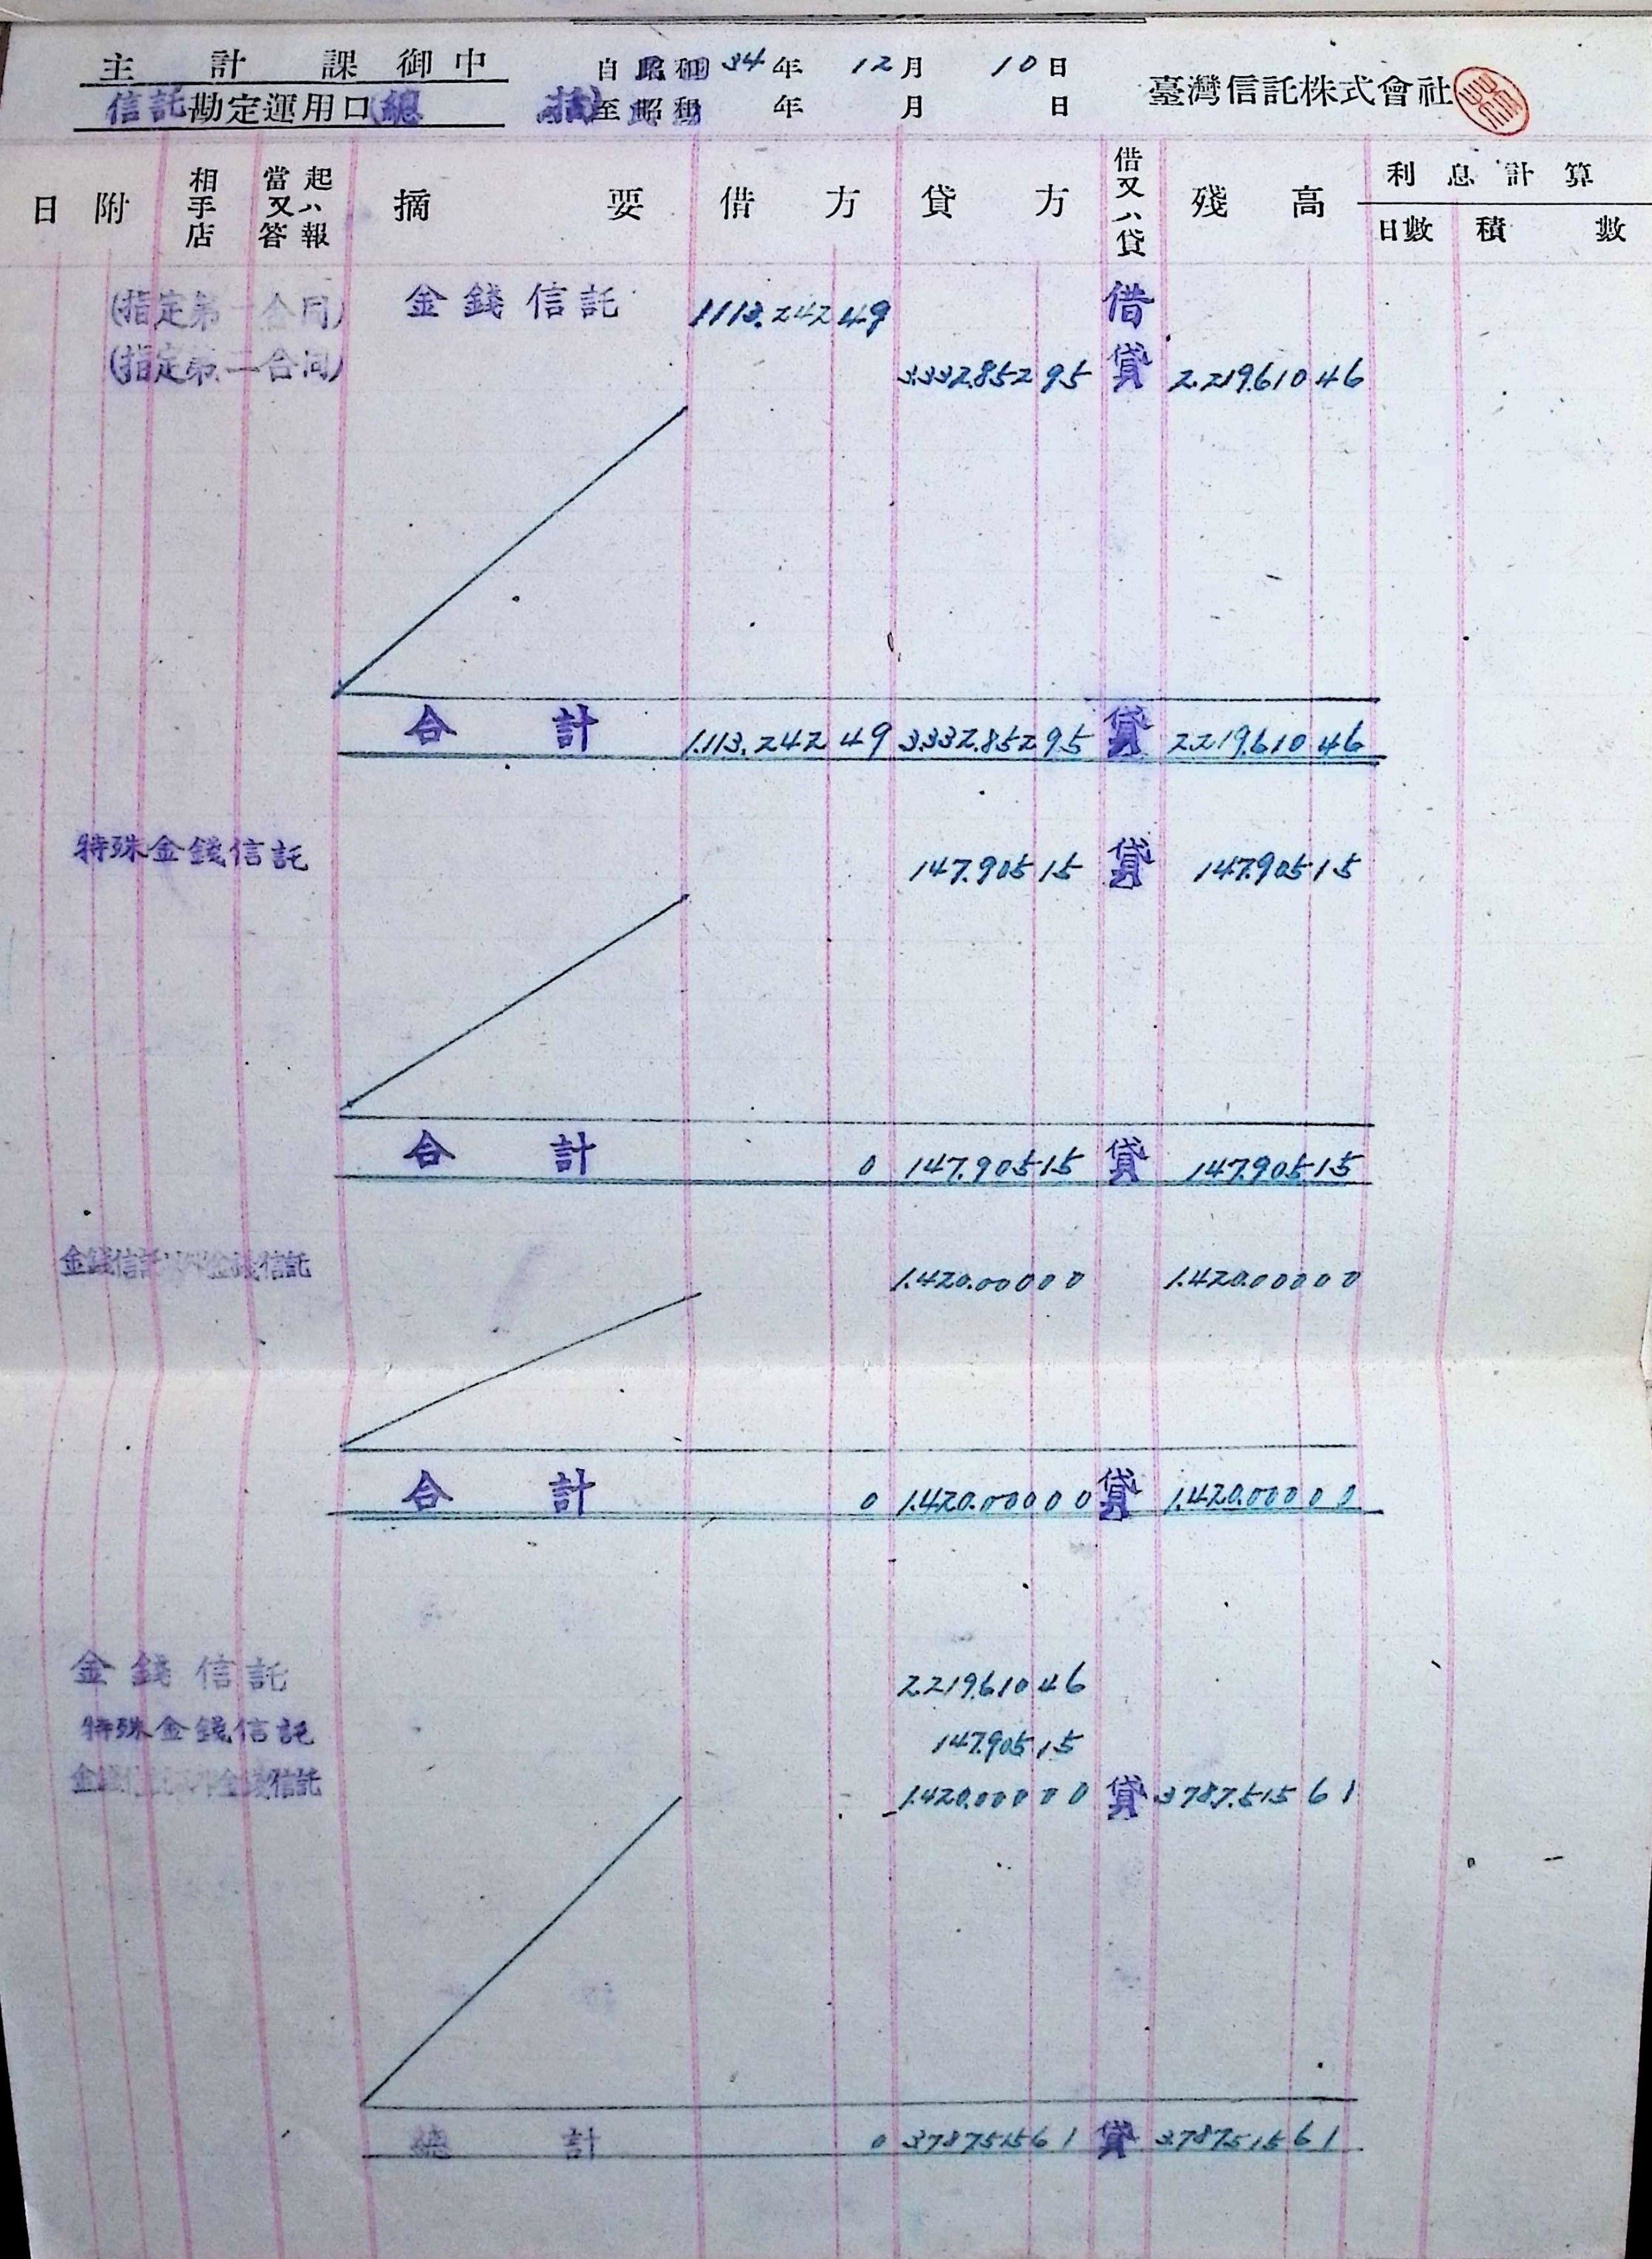 主計課御中
自昭和34年12月10日
臺灣信託株式會社
信託勘定運用口(總括)
至昭和 年 月 日
日附 相手店 當又答 起ハ報 摘要 借方 貸方 借又ハ貸 殘高 利息計算
日數 積數
(指定第一合同) 金錢信託 1.113.242 49 借
(指定第二合同) 3.332.852 95 貸 2.219.610 46
合計 1.113.242 49 3.332.852 95 貸 2.219.610 46
特殊金錢信託 147.905 15 貸 147.905 15
合計 0 147.905 15 貸 147.905 15
金錢信託以外金錢信託 1.420.000 00 1.420.000 00
合計 0 1.420.000 00 貸 1.420.000 00
金錢信託 2.219.610 46
特殊金錢信託 147.905 15
金錢信託以外金錢信託 1.420.000 00 貸 3787.515 61
總計 0 3787515 61 貸 3787515 61